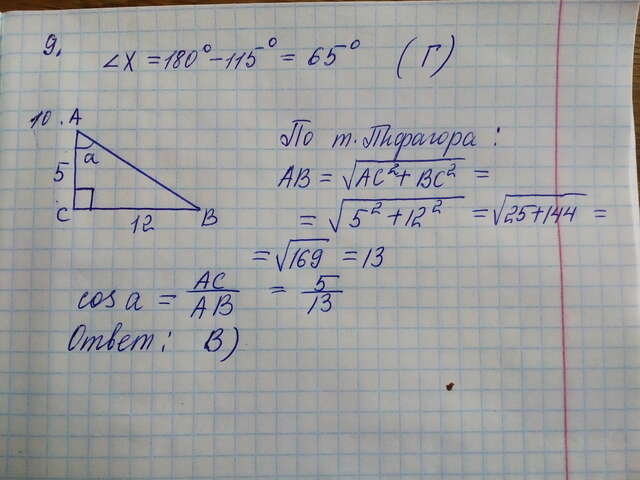 9. ∠X = 180° - 115° = 65° (Г)
10. A
a
5
C
12
B
По т. Пифагора:
AB = √AC² + BC² =
= √5² + 12² = √25 + 144 =
= √169 = 13
cos a = AC/AB = 5/13
Ответ: В)